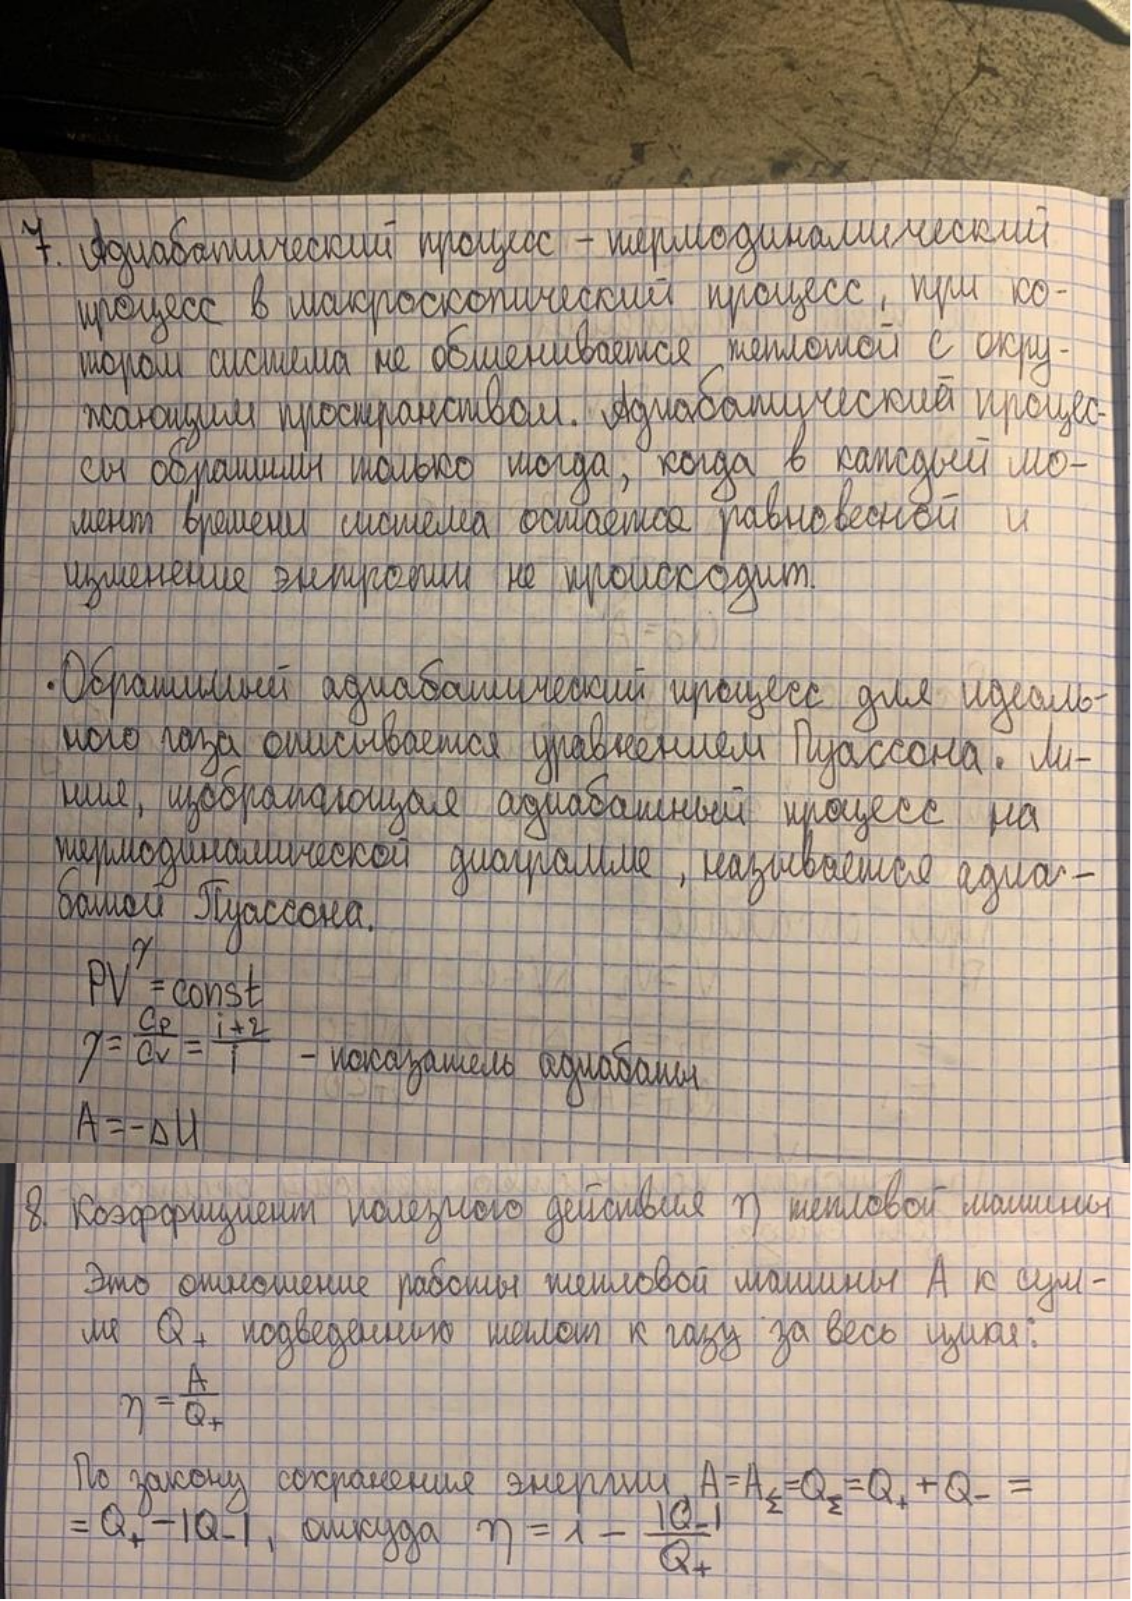 7. Адиабатический процесс – термодинамический
процесс в макроскопический процесс, при ко-
тором система не обменивается теплотой с окру-
жающим пространством. Адиабатический процес-
сы обратимы только тогда, когда в каждый мо-
мент времени система остается равновесной и
изменение энтропии не происходит.
·Обратимый адиабатический процесс для идеаль-
ного газа описывается уравнением Пуассона. Ли-
ния, изображающая адиабатный процесс на
термодинамической диаграмме, называется адиа-
батой Пуассона.
PV^γ = const
γ = Cp/Cv = i+2/i – показатель адиабаты
A = -ΔU
8. Коэффициент полезного действия η тепловой машины
Это отношение работы тепловой машины A к сум-
ме Q₊ подведенных теплот к газу за весь цикл:
η = A/Q₊
По закону сохранения энергии A=A_Σ=Q_Σ=Q₊+Q₋ =
= Q₊ - |Q₋|, откуда η = 1 - |Q₋|/Q₊